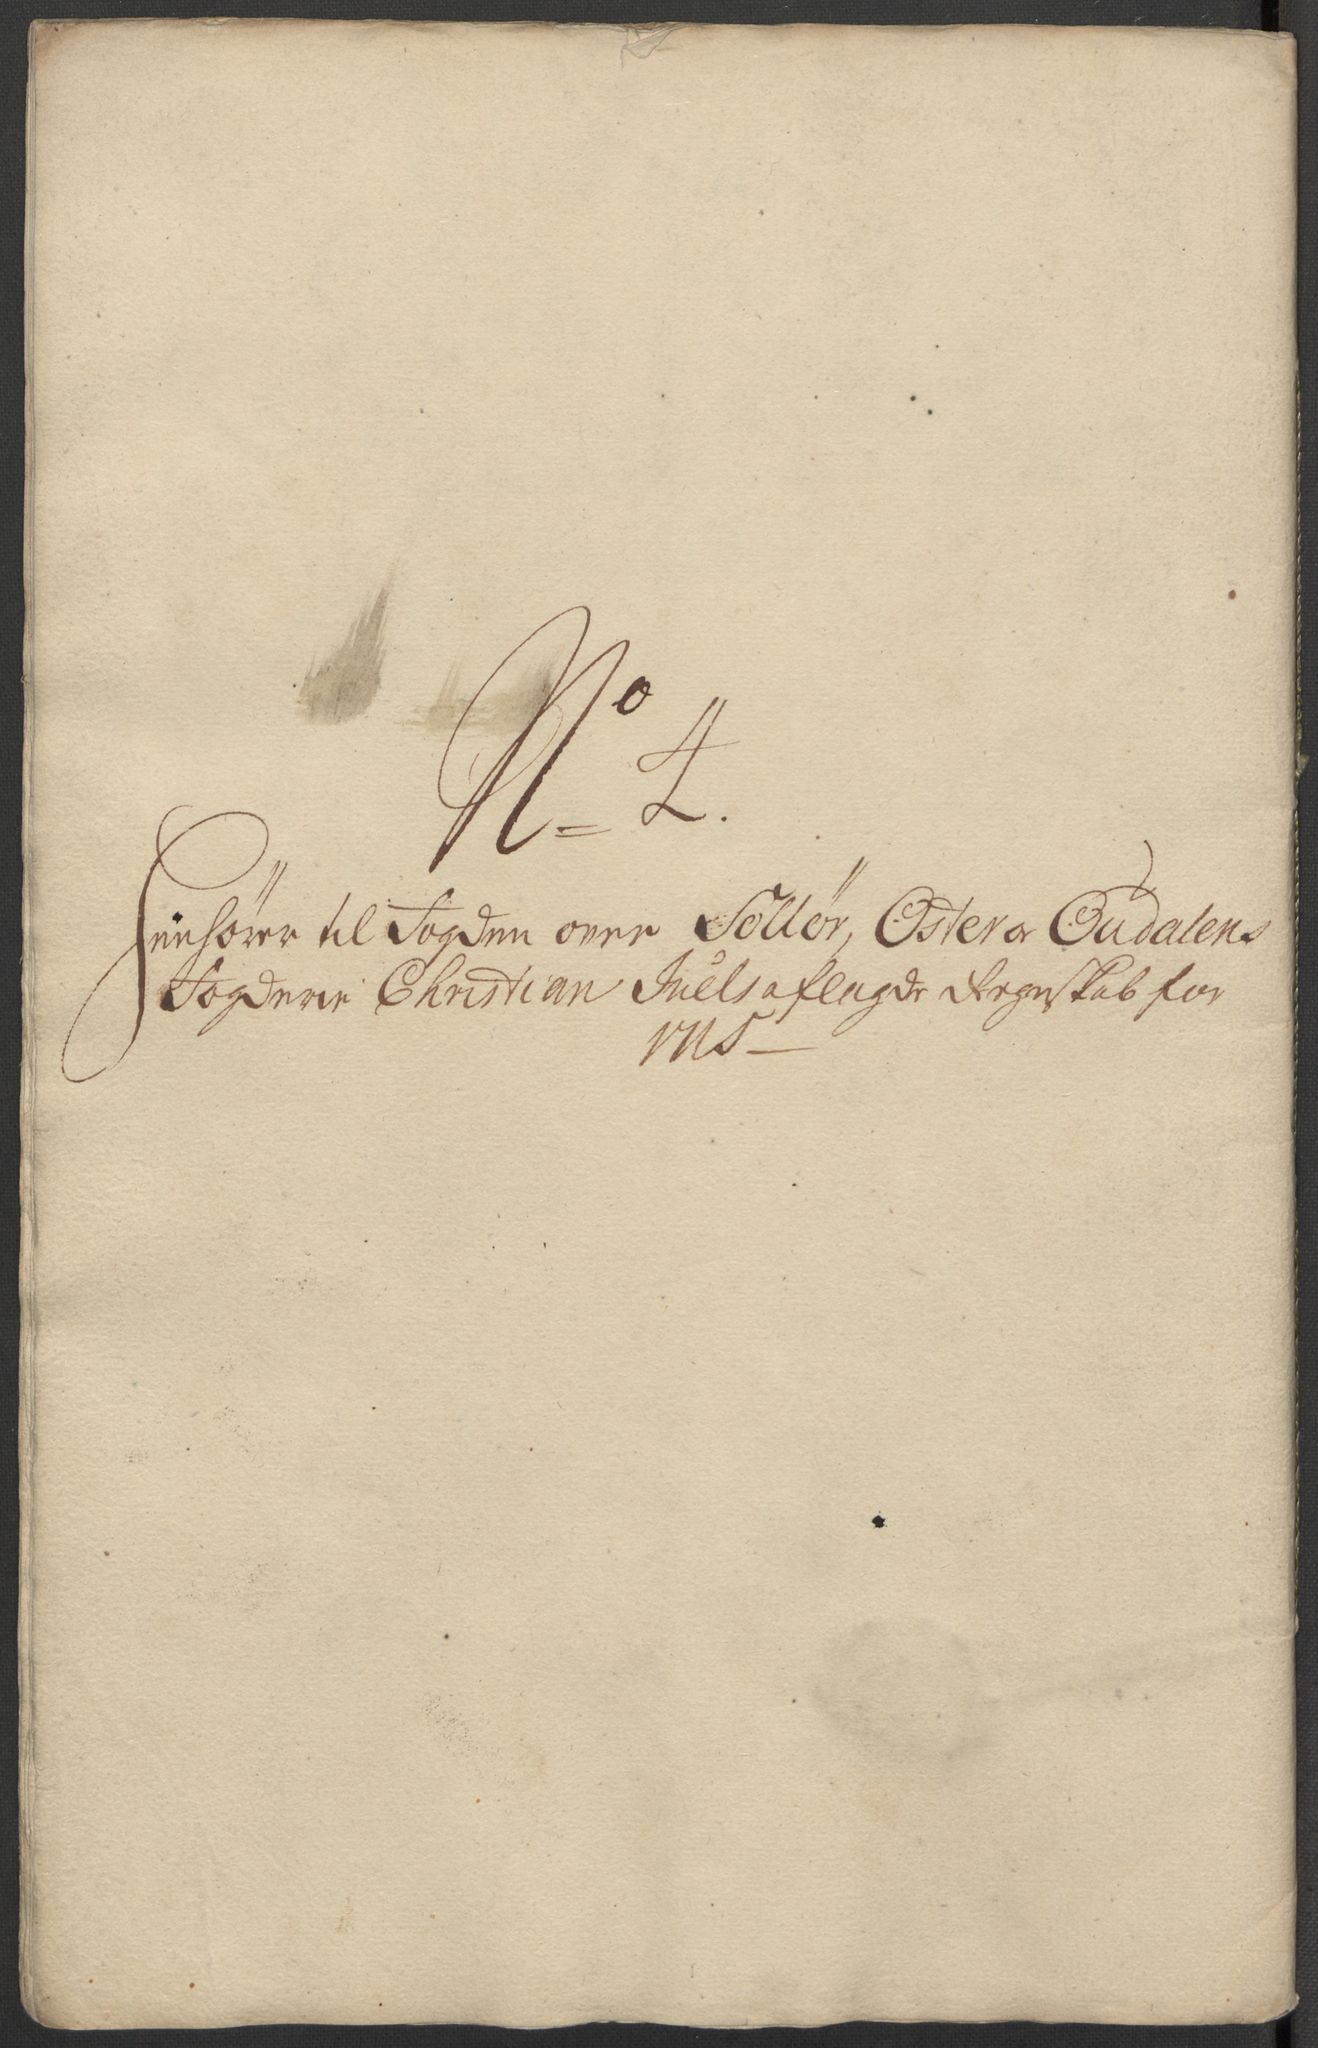 No 4.
Henhører til Fogden over Sollør, Øster og Oudalens
Fogderie Christian Juels aflagde Regnskab for
1715